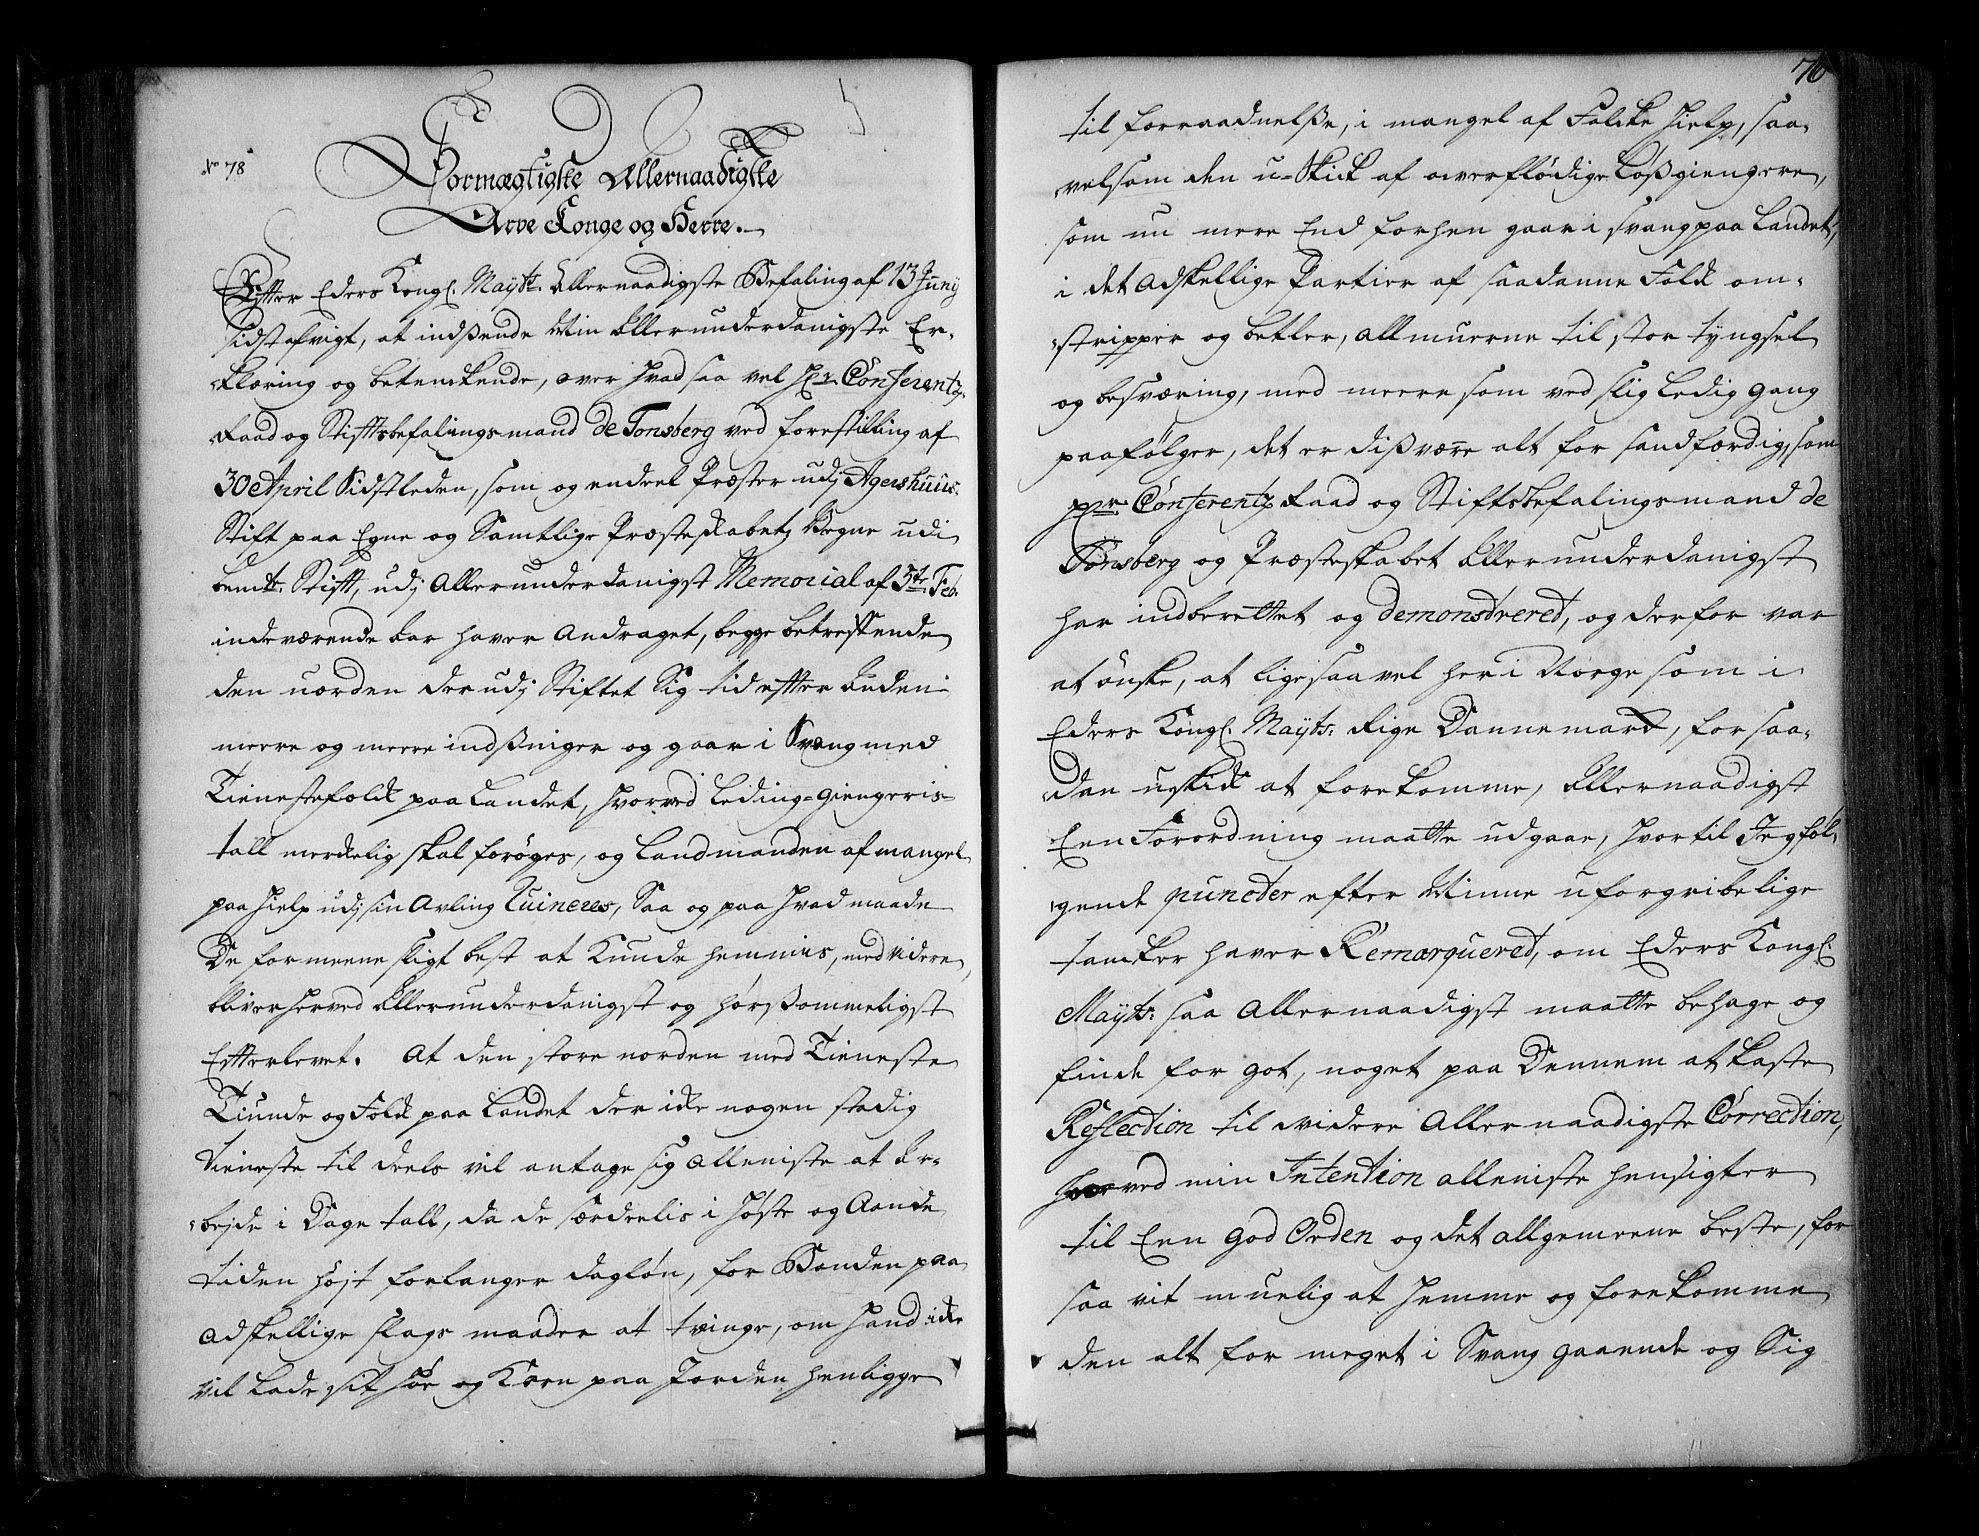 No 78
Stormægtigste Allernaadigste
Arve Konge og Herre.
Efter Eders Kongl. Maytz. Allernaadigste Befaling af 13 Juny
sidst afvigt, at indsende Min Allerunderdanigste Er-
klæring og betenckende, over hvad saa vel Hr. Conferentz-
Raad og Stiftsbefalingsmand de Tonsberg ved forestilling af
30 April Sidstleden, som og endeel Præster udj Agershuus
Stift paa Egne og Samtlige Præsteskabetz Vegne udi
bemte. Stift, udj Allerunderdanigst Memorial af 5te Feb.
indeværende Aar haver Andraget, begge betreffende
den uorden der udj Stiftet Sig tid efter Anden
meere og meere indsniger og gaar i Svang med
Tienestefolck paa Landet, hvorved Leding-giengeris
tall merckelig skal forøges, og Landmanden af mangel
paa Hielp udj sin Avling Ruineres, Saa og paa hvad maade
De formeene sligt best at Kunde hemmis, med videre,
bliver herved Allerunderdanigst og hørsommeligst
Efterlevet. At den store uorden med Tieneste
Tiunde og Folck paa Landet der icke nogen stadig
tieneste til deels vil antage sig alleniste at Ar-
bejde i Dage tall, da de særdeelis i Høste og Aande
tiden højt forlanger dagløn, for Bonden paa
adskellige slags maader at tvinge, om Hand icke
vil lade sit Høe og Korn paa Jorden henligge
76
til forraadnelsse, i mangel af Folcke Hielp, saa-
velsom den u-Skick af overflødige Løsgiengere,
som nu mere End forhen gaar i svang paa Landet,
i det Adskellige Partier af saadanne Folck om-
stripper og betler, Allmuerne til stor tyngsel
og besværing, med meere som ved slig Ledig gang
paafølger, det er dissverre alt for sandfærdig, som
Hr. Conferentz Raad og Stiftsbefalingsmand de
Tonsberg og Præsteskabet Allerunderdanigst
har indberettet og demonstreret, og derfor var
at ønske, at ligesaavel her i Norge som i
Eders Kongl. Mayts. Rige Dannemarck, for saa-
dan uskick at forekomme, Allernaadigst
Een Forordning maatte udgaae, hvortil Jeg føl-
gende puncter efter Minne uforgribelige
tancker haver Remarqueret, om Eders Kongl.
Mayts. saa Allernaadigst maatte behage og
finde for got, noget paa Dennem at kaste
Reflection til videre Allernaadigste Correction,
hvorved min Intention alleniste hensigter
til Een god Orden og det allgemeene beste, for
saa vit muelig at hemme og forekomme
den alt for meget i Svang gaaende og Sig